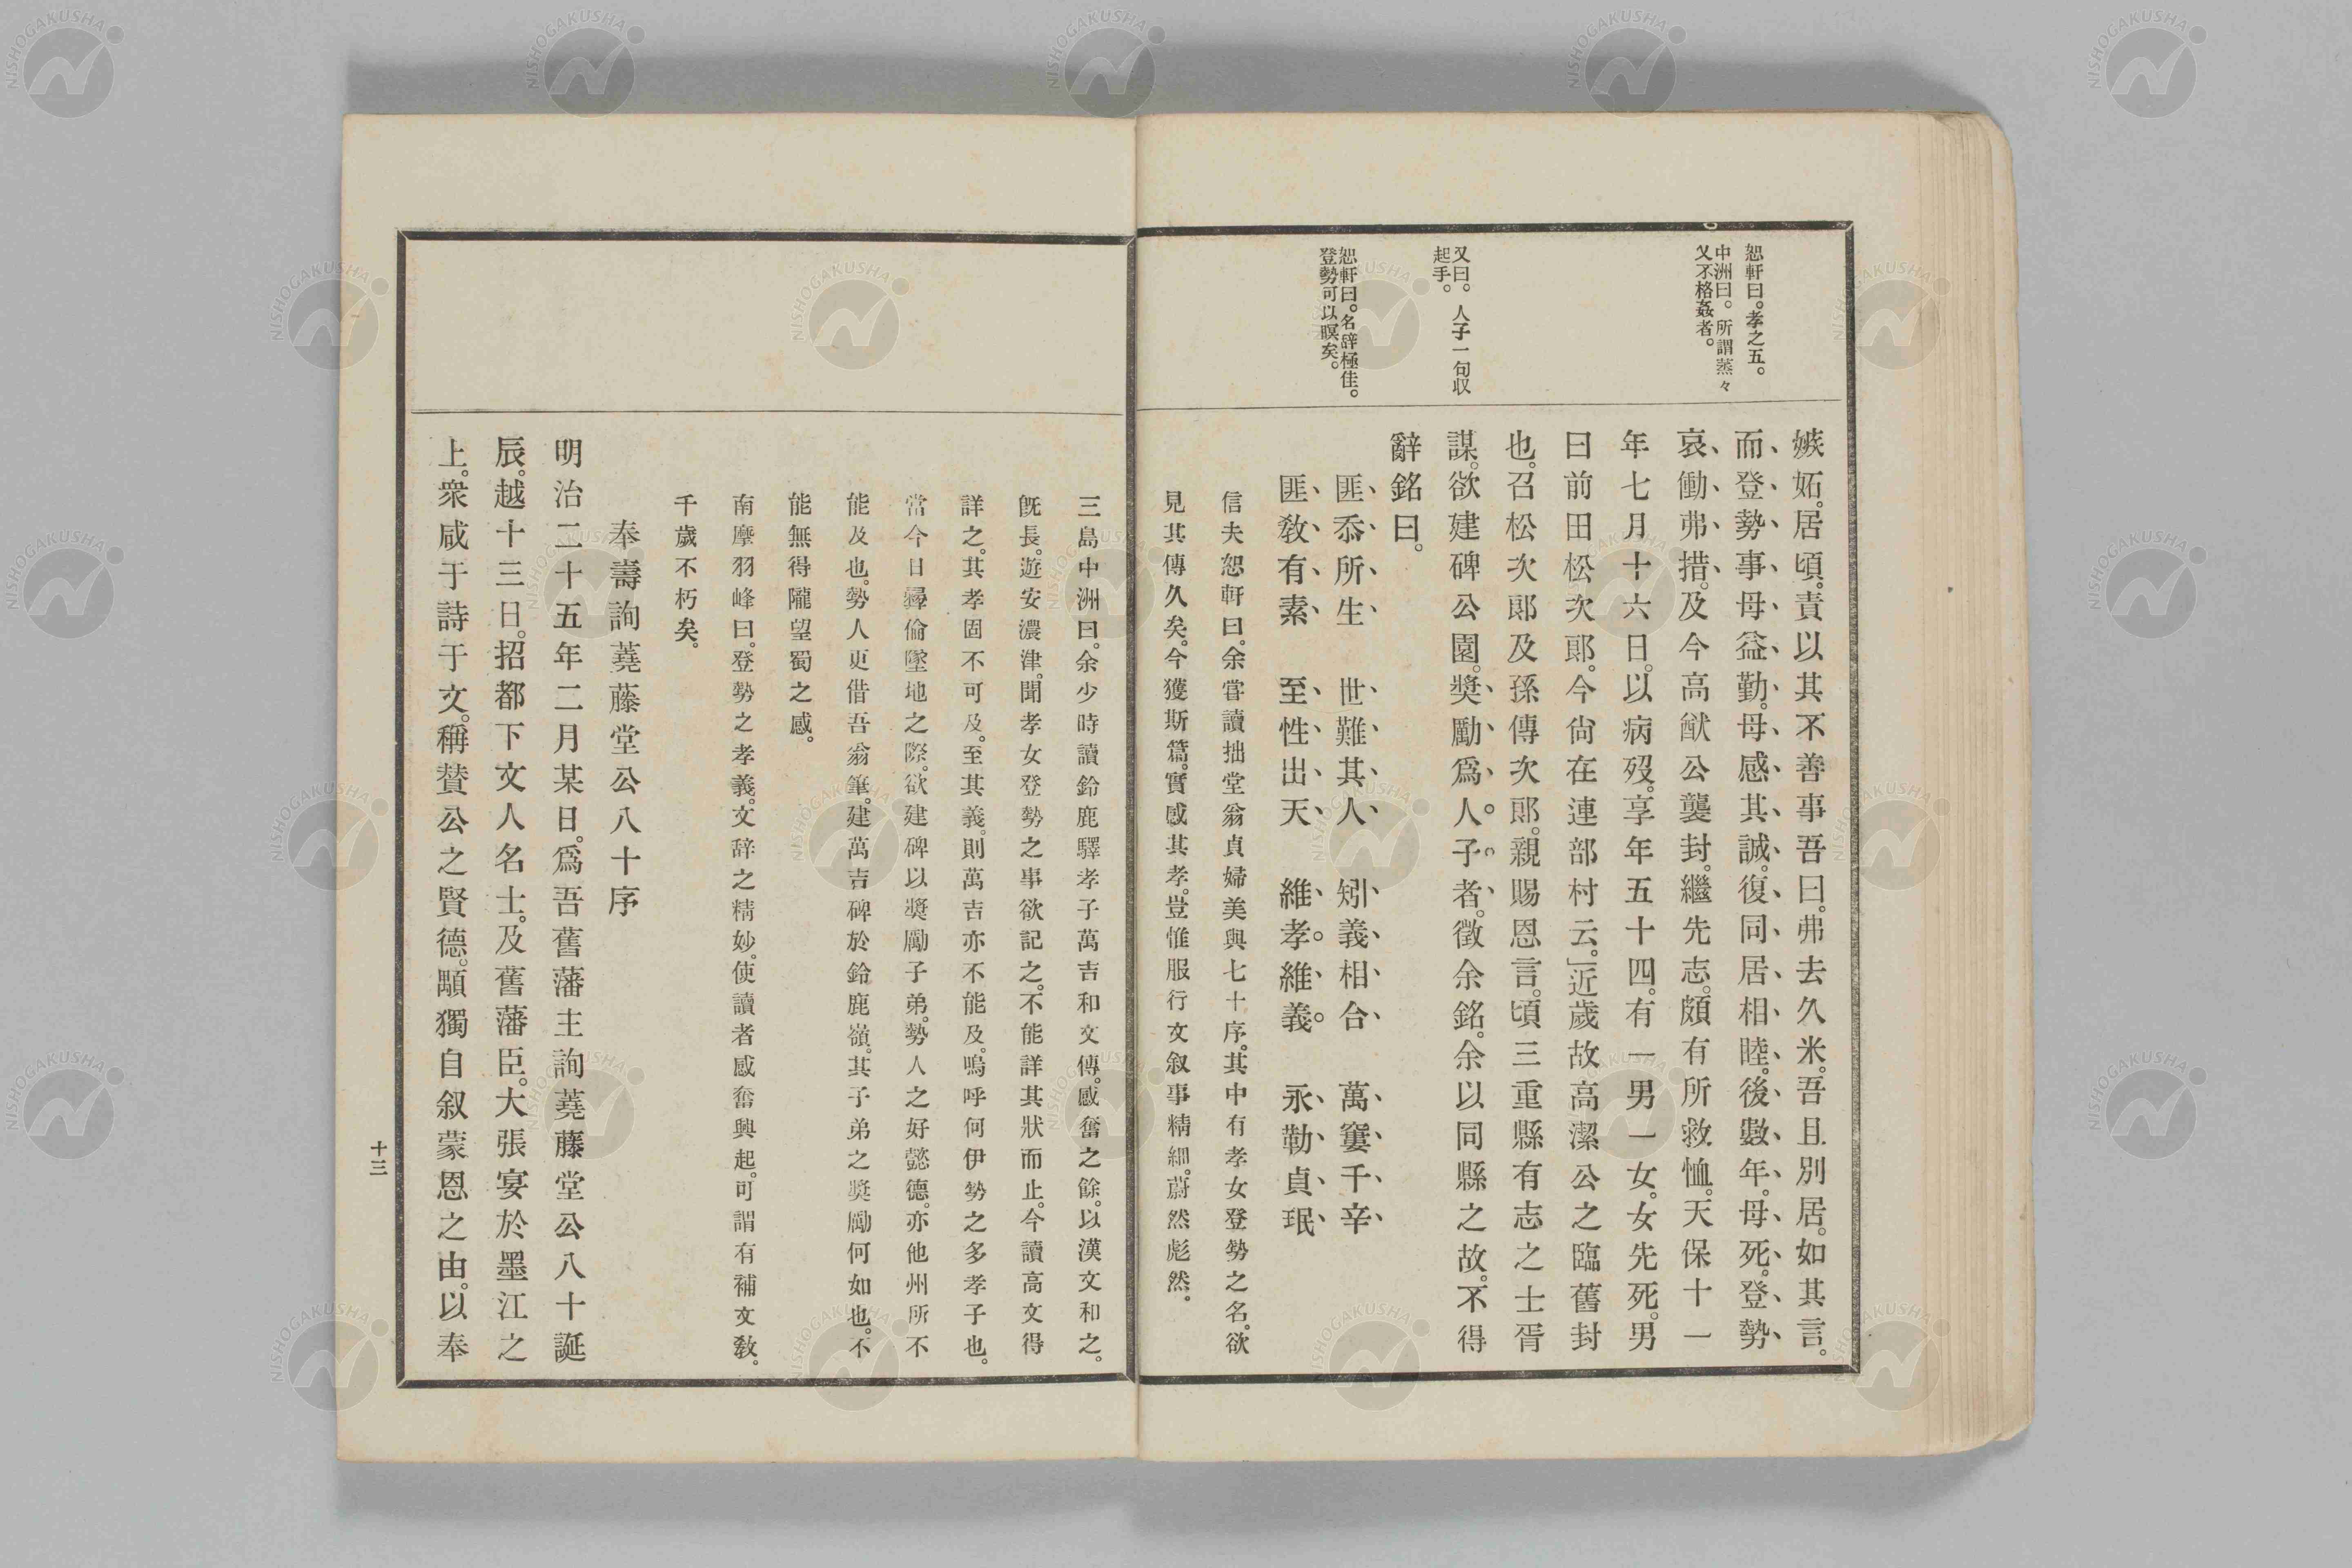 恕軒曰。孝之五。
中洲曰。所謂蒸々
乂不格姦者。
又曰。人子一句収
起手。
恕軒曰。名辞極佳。
登勢可以瞑矣。
嫉妬。居頃。責以其不善事吾曰。弗去久米。吾且別居。如其言。
而登勢事母益勤。母感其誠。復同居相睦。後數年。母死。登勢
哀働弗措。及今高猷公襲封。繼先志。頗有所救恤。天保十一
年七月十六日。以病歿。享年五十四。有一男一女。女先死。男
曰前田松次郎。今尙在連部村云。」近歲故高潔公之臨舊封
也。召松次郎及孫傳次郎。親賜恩言。頃三重縣有志之士胥
謀。欲建碑公園。奬勵爲人子者。徵余銘。余以同縣之故。不得
辭銘曰。
匪忝所生 世難其人 矧義相合 萬窶千辛
匪敎有素 至性出天 維孝維義。 永勒貞珉
信夫恕軒曰。余嘗讀拙堂翁貞婦美與七十序。其中有孝女登勢之名。欲
見其傳久矣。今獲斯篇。實感其孝。豈惟服行文叙事精細。蔚然彪然。
三島中洲曰。余少時讀鈴鹿驛孝子萬吉和文傳。感奮之餘。以漢文和之。
旣長。遊安濃津。聞孝女登勢之事欲記之。不能詳其狀而止。今讀高文得
詳之。其孝固不可及。至其義。則萬吉亦不能及。嗚呼何伊勢之多孝子也。
當今日彝倫墜地之際。欲建碑以奬勵子弟。勢人之好懿德。亦他州所不
能及也。勢人更借吾翁筆。建萬吉碑於鈴鹿嶺。其子弟之奬勵何如也。不
能無得隴望蜀之感。
南摩羽峰曰。登勢之孝義。文辞之精妙。使讀者感奮興起。可謂有補文敎。
千歲不朽矣。
奉壽詢蕘藤堂公八十序
明治二十五年二月某日。爲吾舊藩主詢蕘藤堂公八十誕
辰。越十三日。招都下文人名士。及舊藩臣。大張宴於墨江之
上。衆咸于詩于文。稱賛公之賢德。顒獨自叙蒙恩之由。以奉
十三